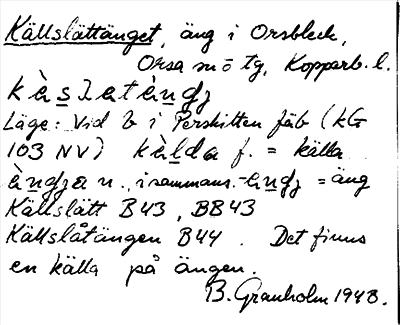 Källslättänget, äng i Orsbleck,
Orsa sn ö tg, Kopparb. l.
kȁslatèngȝ
Läge: Vid b i Perskitten fäb (kG
103 NV) kȁlda f. = källa
ȁngȝa n., i sammans. -èngȝ = äng
Källslätt B43, BB43
Källslåtängen B44. Det finns
en källa på ängen.
B. Granholm 1948.